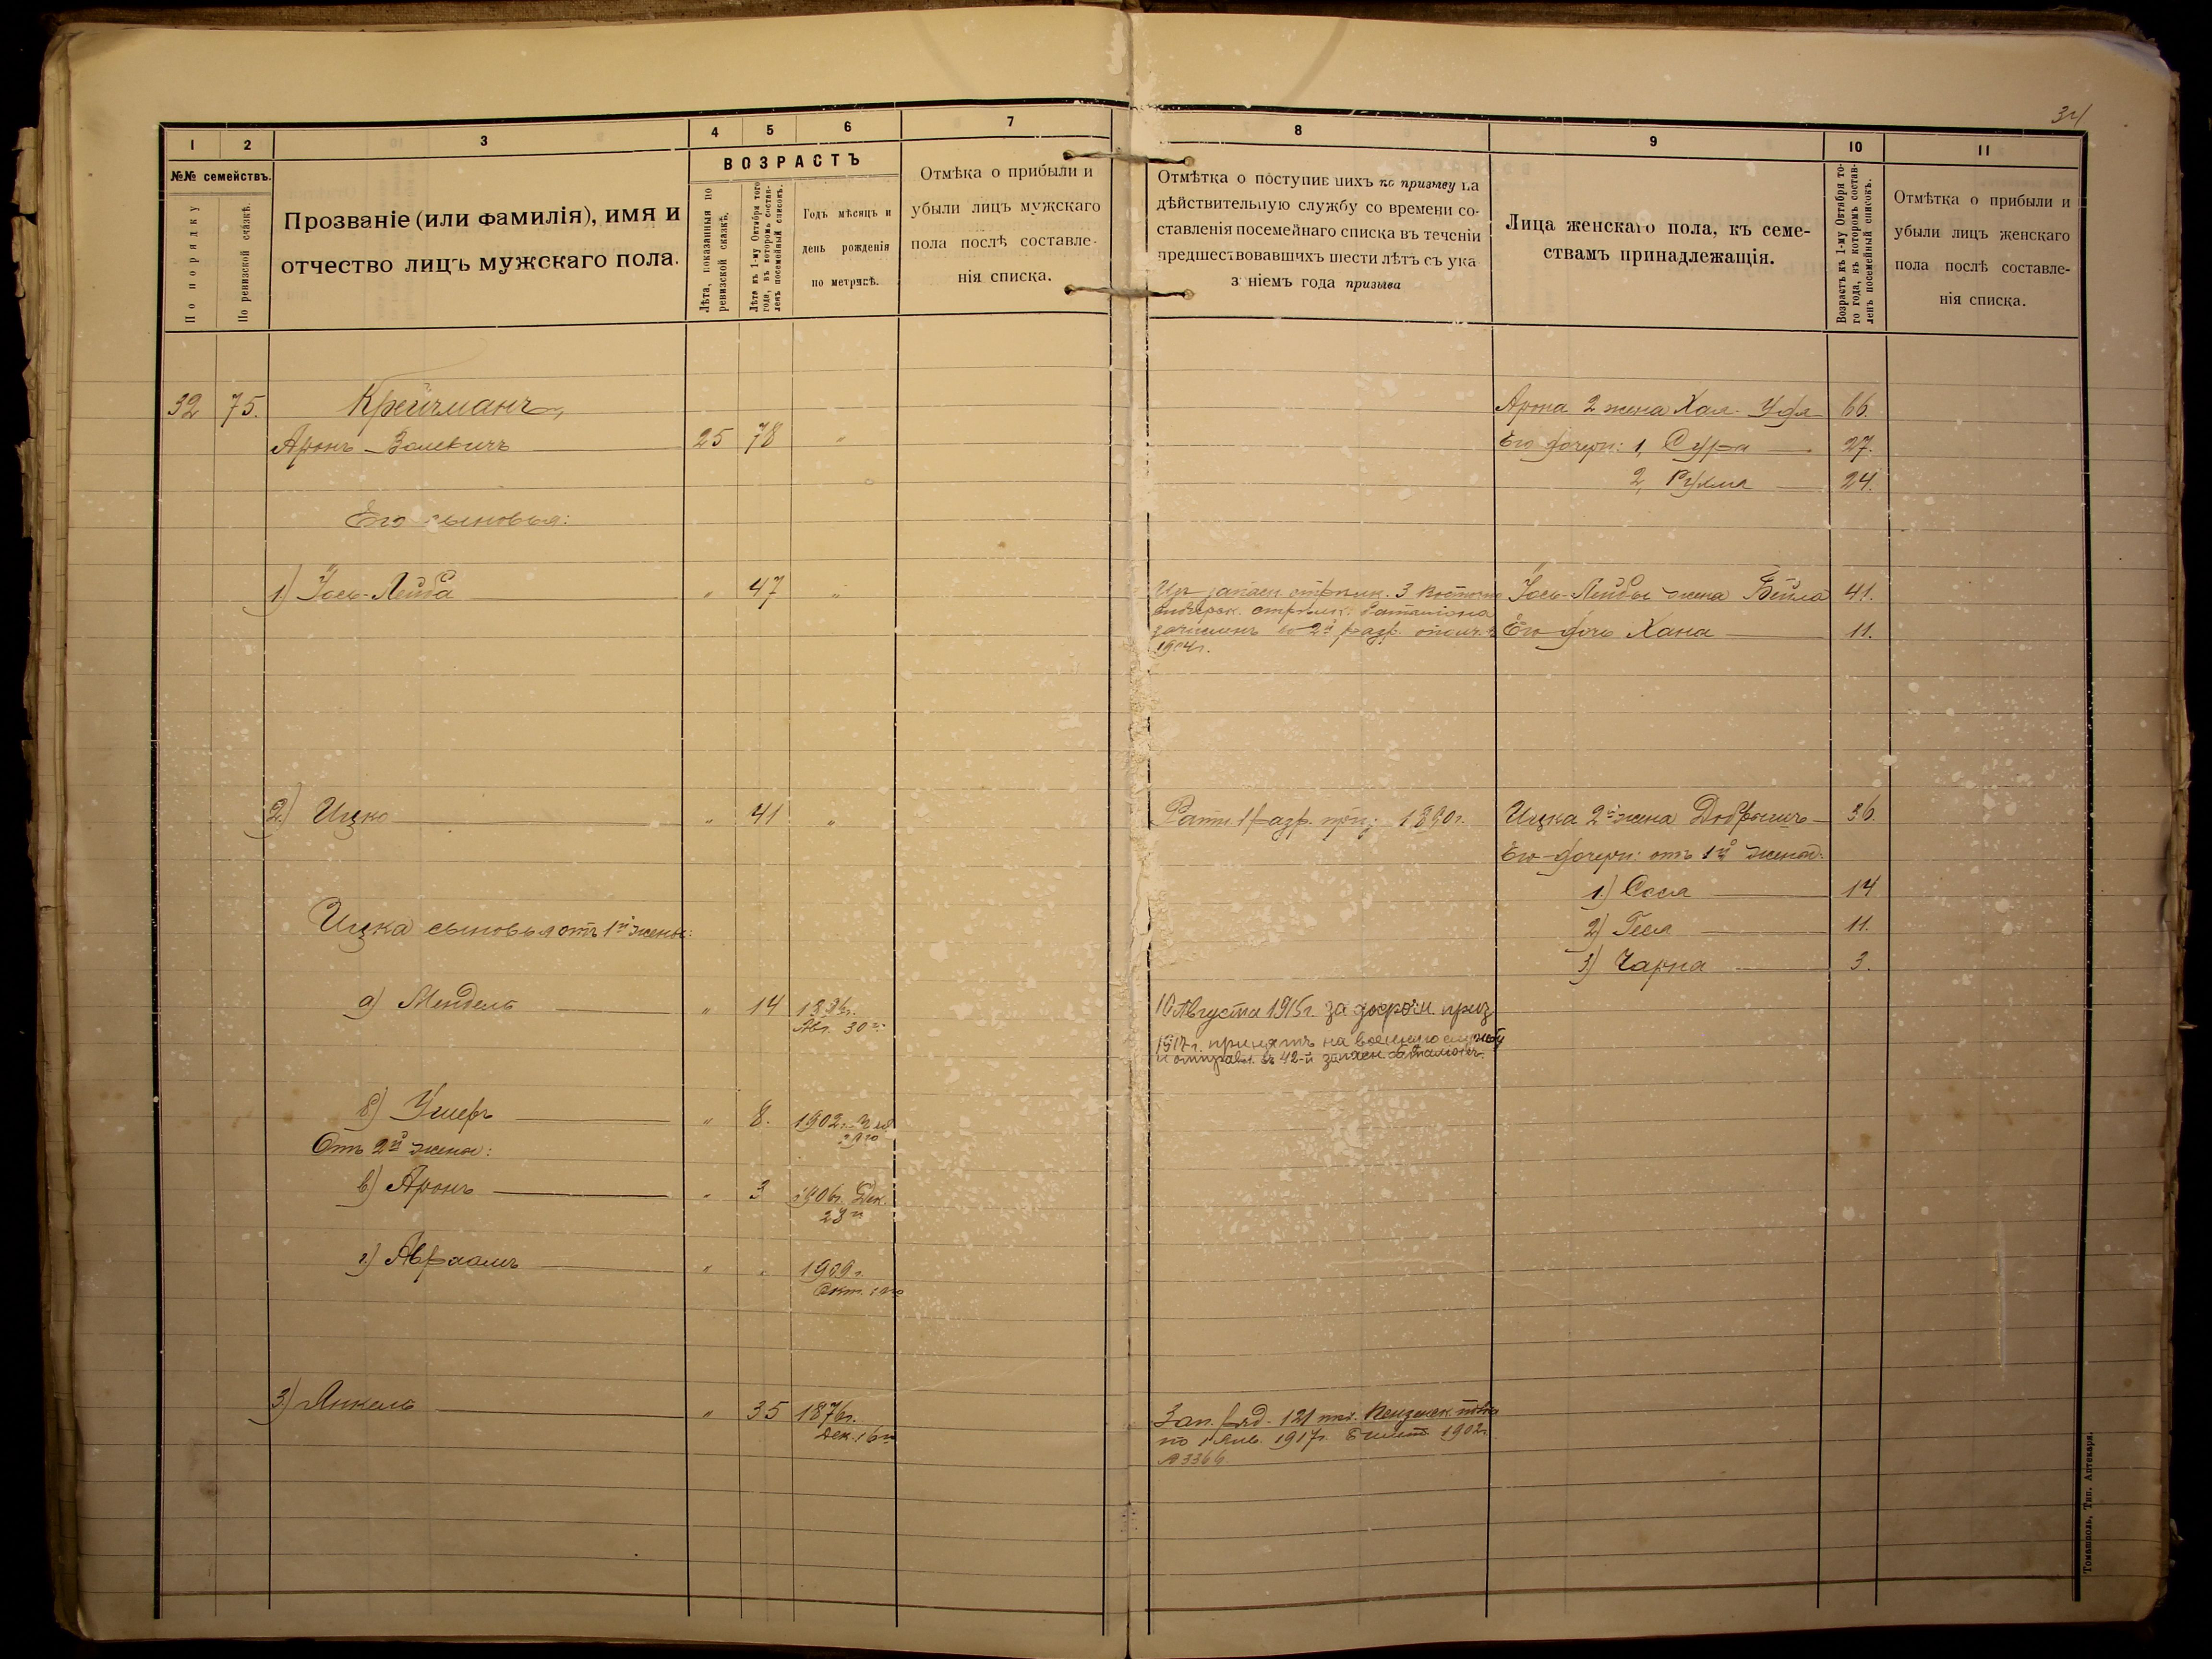 34
1
2
3
4
5
6
7
8
9
10
11
№№ семействъ.
По порядку
По ревизской сказкѣ.
Прозваніе (или фамилія), имя и
отчество лицъ мужскаго пола.
ВОЗРАСТЪ
Лѣта, показанныя по
ревизской сказкѣ.
Лѣта къ 1-му Октября того
года, въ которомъ состав-
ленъ посемейный списокъ.
Годъ мѣсяцъ и
день рожденія
по метрикѣ.
Отмѣка о прибыли и
убыли лицъ мужскаго
пола послѣ составле-
нія списка.
Отмѣтка о поступившихъ по призыву на
дѣйствительную службу со времени со-
ставленія посемейнаго списка въ теченіи
предшествовавшихъ шести лѣтъ съ ука
заніемъ года призыва
Лица женскаго пола, къ семе-
ствамъ принадлежащія.
Возрастъ къ 1-му Октября то-
го года, въ которомъ состав-
ленъ посемейный списокъ.
Отмѣтка о прибыли и
убыли лицъ женскаго
пола послѣ составле-
нія списка.
32 75. Крейчманъ
Арона 2 жена Хая-Удя 66.
Аронъ Золевичъ 25 78 "
Его дочери: 1, Сура 27.
2, Рухма 24.
Его сыновья:
1.) Іось-Лейба " 47 "
Изъ запасн. стрѣлк. 3 Восточно
Сибирск. стрѣлк. баталіона
зачисленъ во 2й разр. ополч. в
1904г.
Іось-Лейбы жена Бейла 41.
Его дочь Хана 11.
2.) Ицко " 41 "
Ратн. 1 разр. приз. 1890г.
Ицка 2я жена Добрышъ 36.
Его дочери: отъ 1й жены:
1.) Сося 14
2) Геся 11.
3) Чарна 3.
Ицка сыновья отъ 1й жены:
а) Мендель " 14 1896г.
Авг. 30го
10 Августа 1915г. за досрочн. приз
1917г. принятъ на военную службу
и отправл. въ 42-й запасн. баталіонъ.
б) Ушеръ " 8. 1902г.
Отъ 2й жены:
в) Аронъ " 3 1906г. Дек.
23го
г) Авраамъ " " 1909г.
Окт.
3) Янкель " 35 1876г.
Дек. 16го
Зап. ряд. 121 пѣх. Пензенск. полка
по 1 Янв. 1917г. билетъ 1902г.
№ 3366
Томашполь, Тип. Аптекаря.